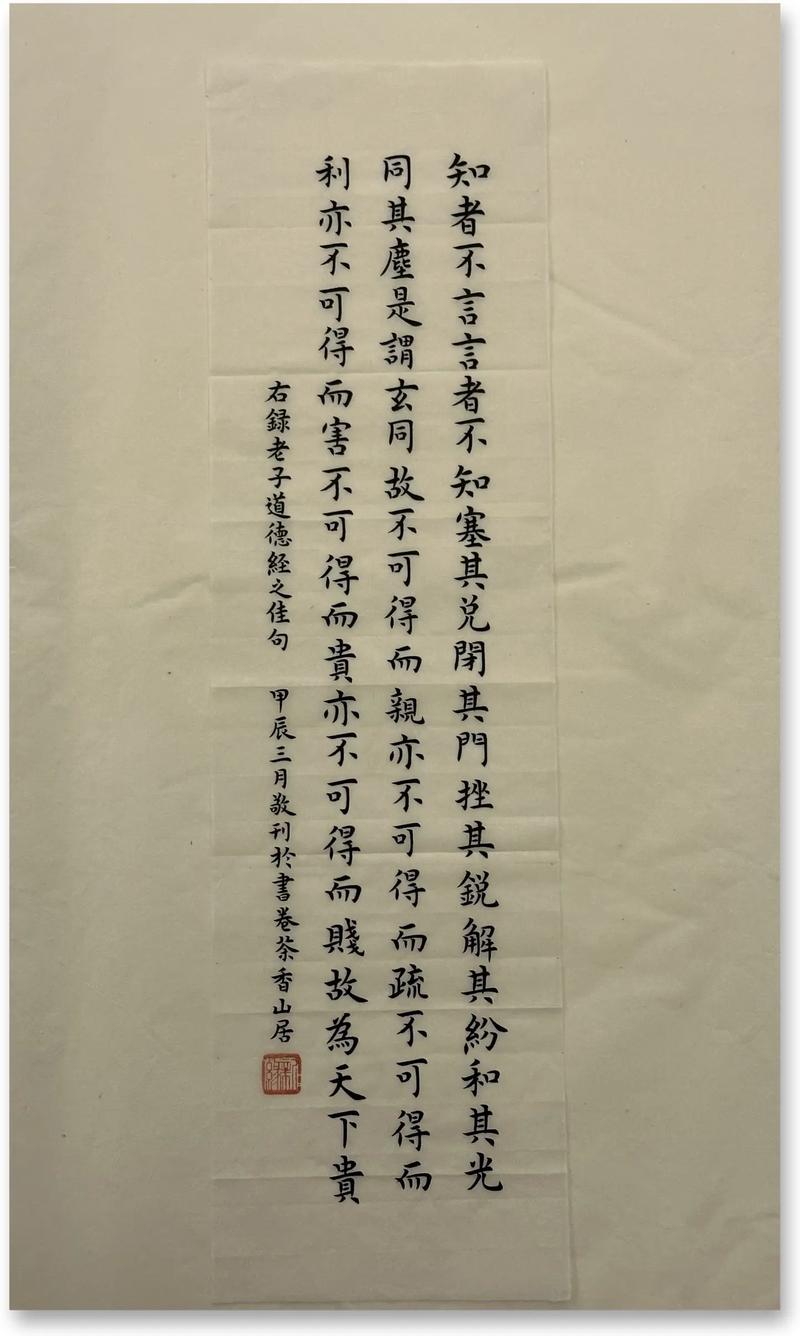 知者不言言者不知塞其兑閉其門挫其鋭解其紛和其光
同其塵是謂玄同故不可得而親亦不可得而疏不可得而
利亦不可得而害不可得而貴亦不可得而賤故為天下貴
右録老子道德経之佳句 甲辰三月敬刊於書卷茶香山居